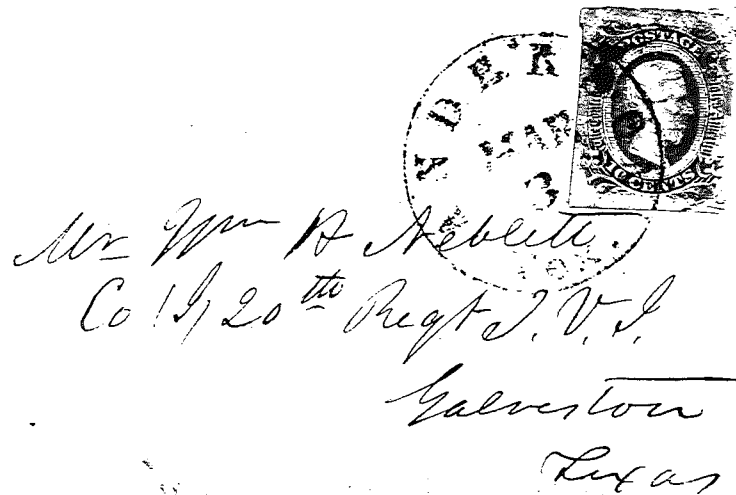 POSTAGE
TEN CENTS
MAR
3
Mr Wm H Neblett.
Co (I) 20th Regt T. V. I.
Galveston
Texas